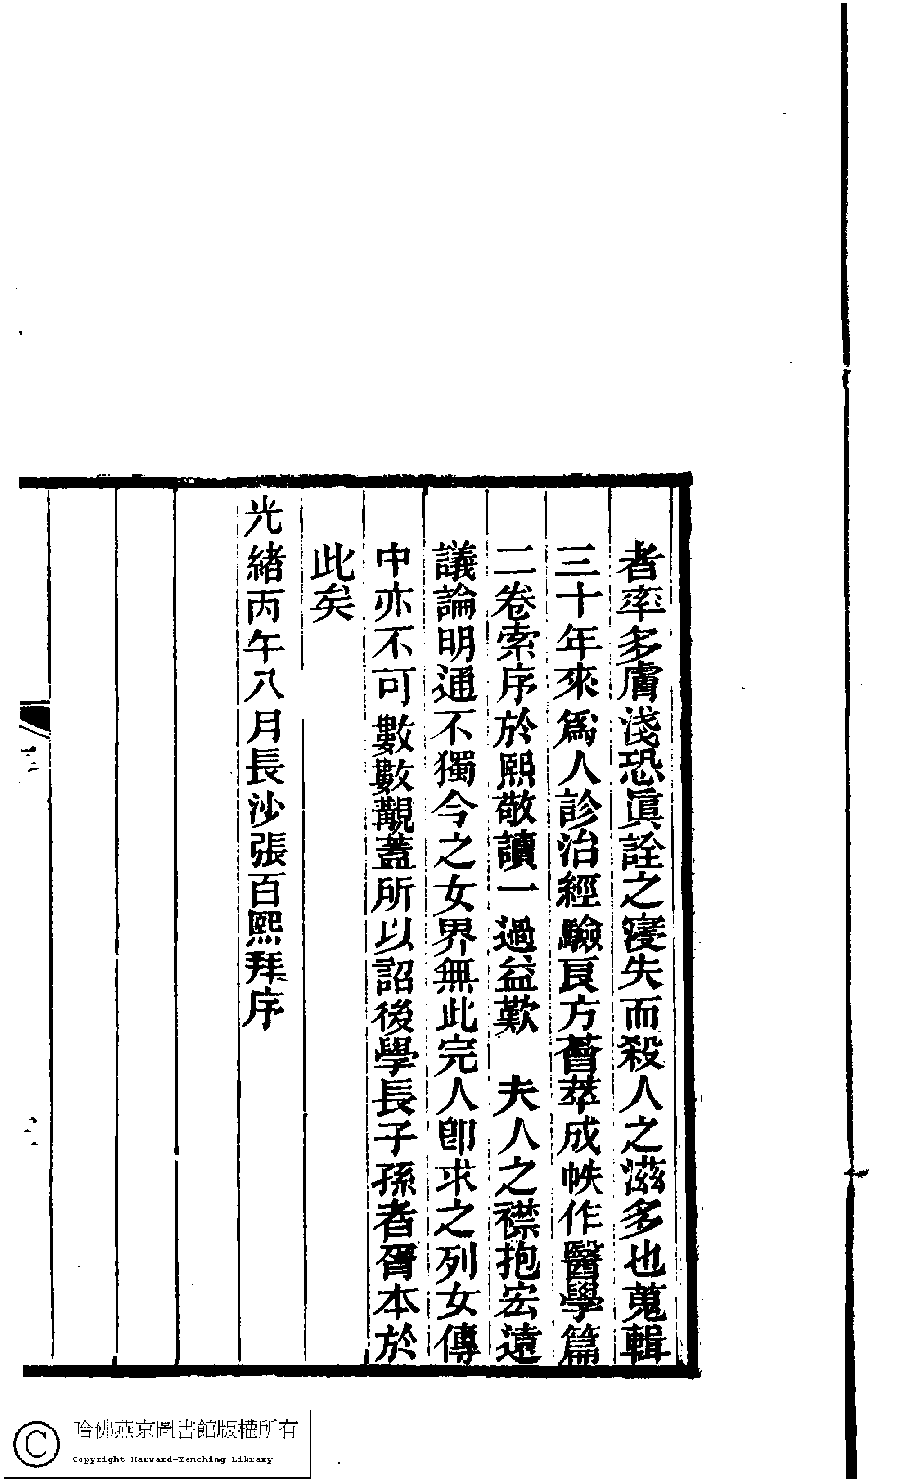 者率多膚淺恐眞詮之寖失而殺人之滋多也蒐輯
三十年來爲人診治經驗良方薈萃成帙作醫學篇
二卷索序於熙敬讀一過益歎　夫人之襟抱宏遠
議論明通不獨今之女界無此完人卽求之列女傳
中亦不可數數覯蓋所以詔後學長子孫者胥本於
此矣
光緒丙午八月長沙張百熙拜序
哈佛燕京圖書館版權所有
Copyright Harvard-Yenching Library